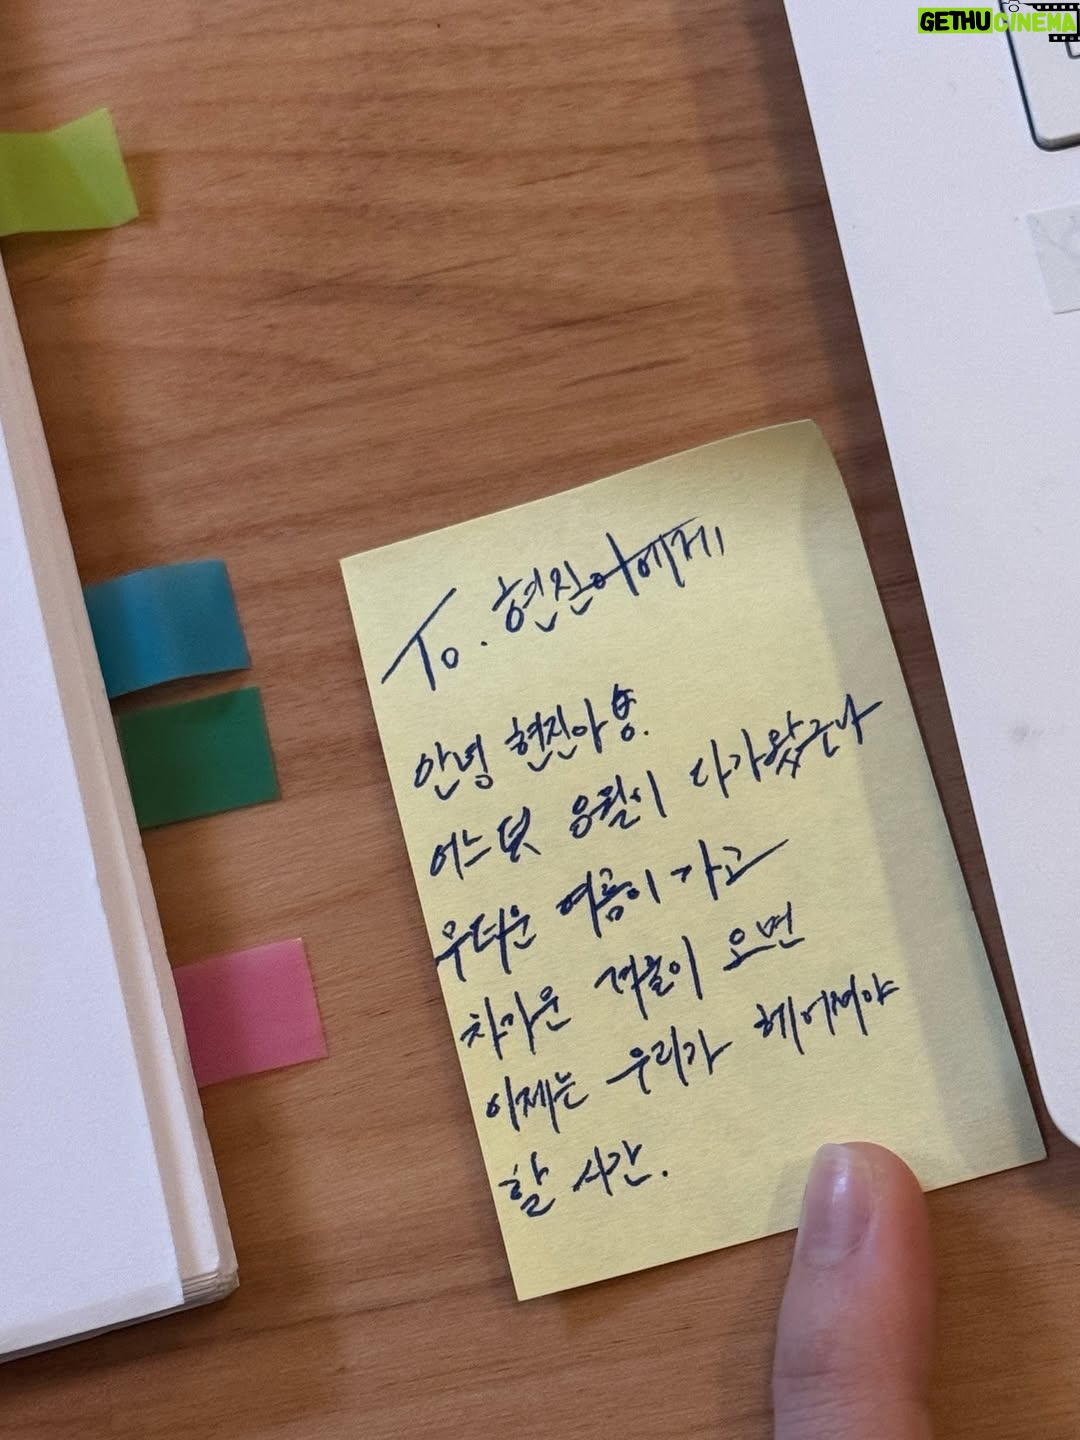 GETHUCINEMA
To. 현진이에게
안녕 현진아 용.
어느덧 응월이 다가왔구나
무더운 여름이 가고
차가운 겨울이 오면
이제는 우리가 헤어져야
할 시간.